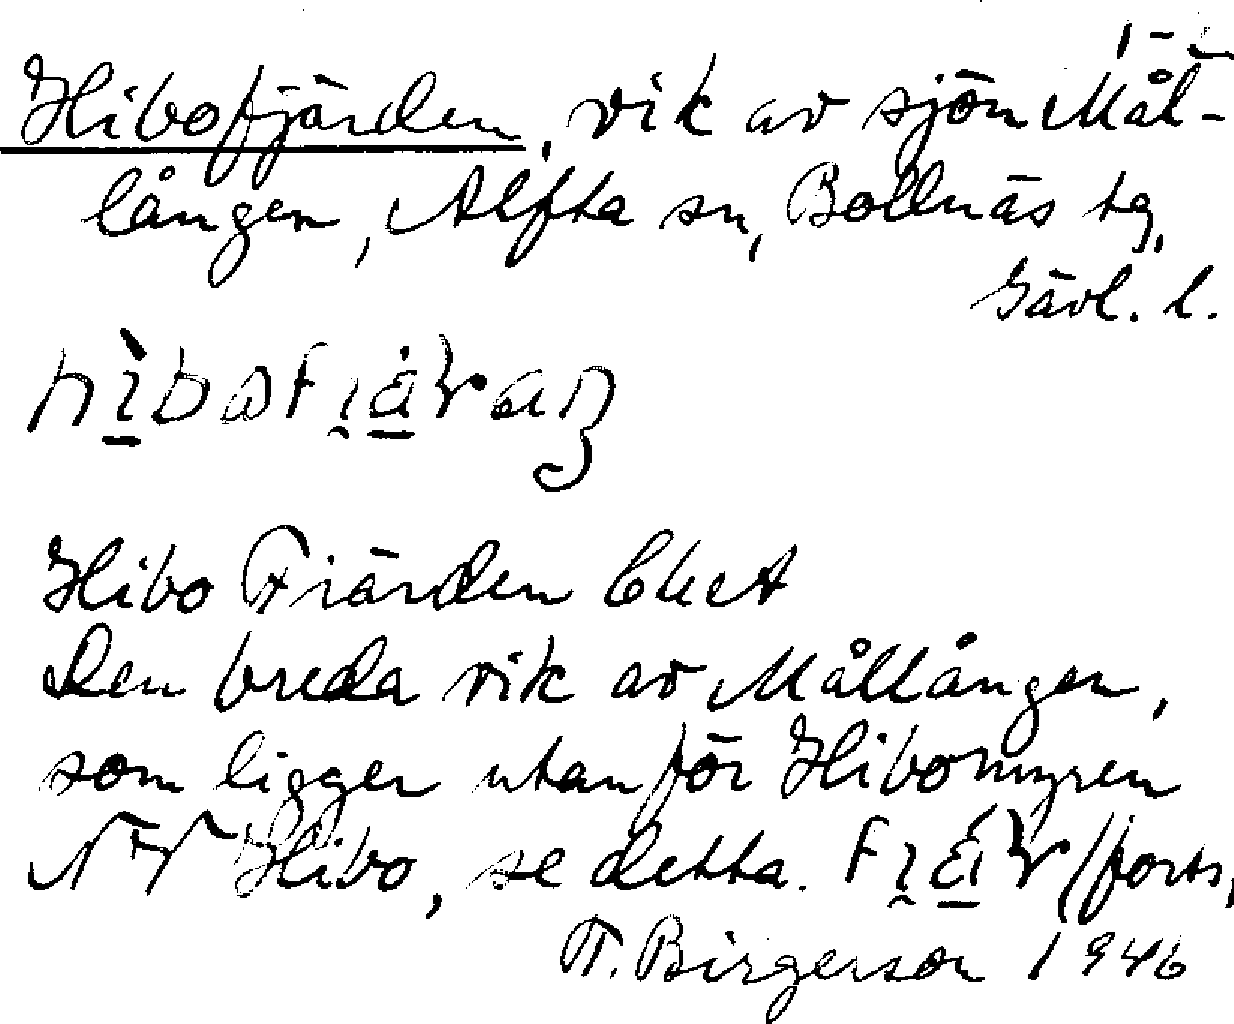 1-2
Hibofjärden, vik av sjön Mål-
lången, Alfta sn, Bollnäs tg,
Gävl. l.
Hibo Fiärden
Den breda vik av Mållången,
som ligger utanför Hibomyren
NV Hibo, se detta. (forts,
T. Birgerson 1946